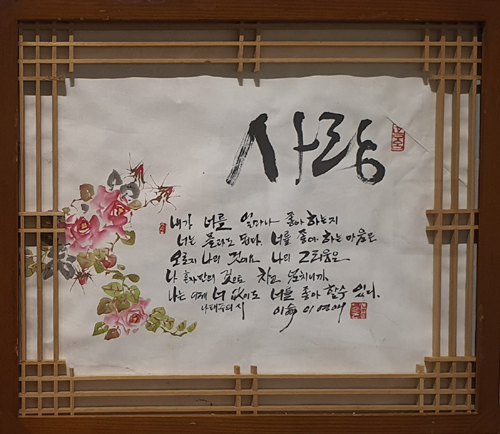 사랑
내가 너를 얼마나 좋아하는지
너는 몰라도 된다. 너를 좋아하는 마음은
오로지 나의 것이요. 나의 그리움은
나 혼자만의 것으로 차고 넘치니까.
나는 이제 너 없이도 너를 좋아 할수 있다.
나태주의 시